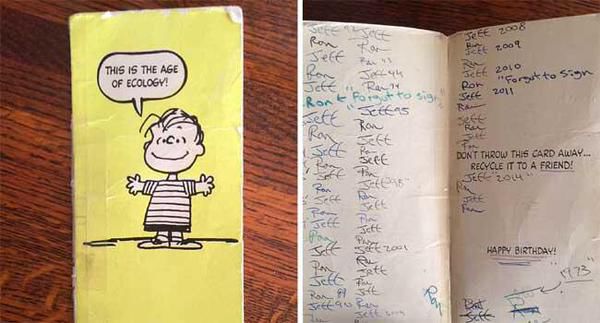 THIS IS THE AGE
OF ECOLOGY!
Jeff 92 Jeff
Ron Ron
Jeff Ron 93
Ron Jeff 94
Jeff " Ron 94
Ron & Forgot to sign
Jeff Jeff 95
Ron Ron
Ron Jeff
Jeff Ron
Ron Jeff
Jeff Jeff 98
Ron Ron
Jeff Jeff
Ron Ron
Jeff
Jeff Jeff 2001
Ron Ron
Jeff Jeff
Ron 89 Jeff
Jeff 90 Ron
Jeff 2008
Ron 2009
Ron
Jeff 2010
Ron "Forgot to sign
Jeff 2011
Ron
Jeff
Ron
Jeff
Ron
DON'T THROW THIS CARD AWAY...
RECYCLE IT TO A FRIEND!
Jeff 2014
Ron
Jeff
Ron
HAPPY BIRTHDAY!
1973
Ron
Jeff